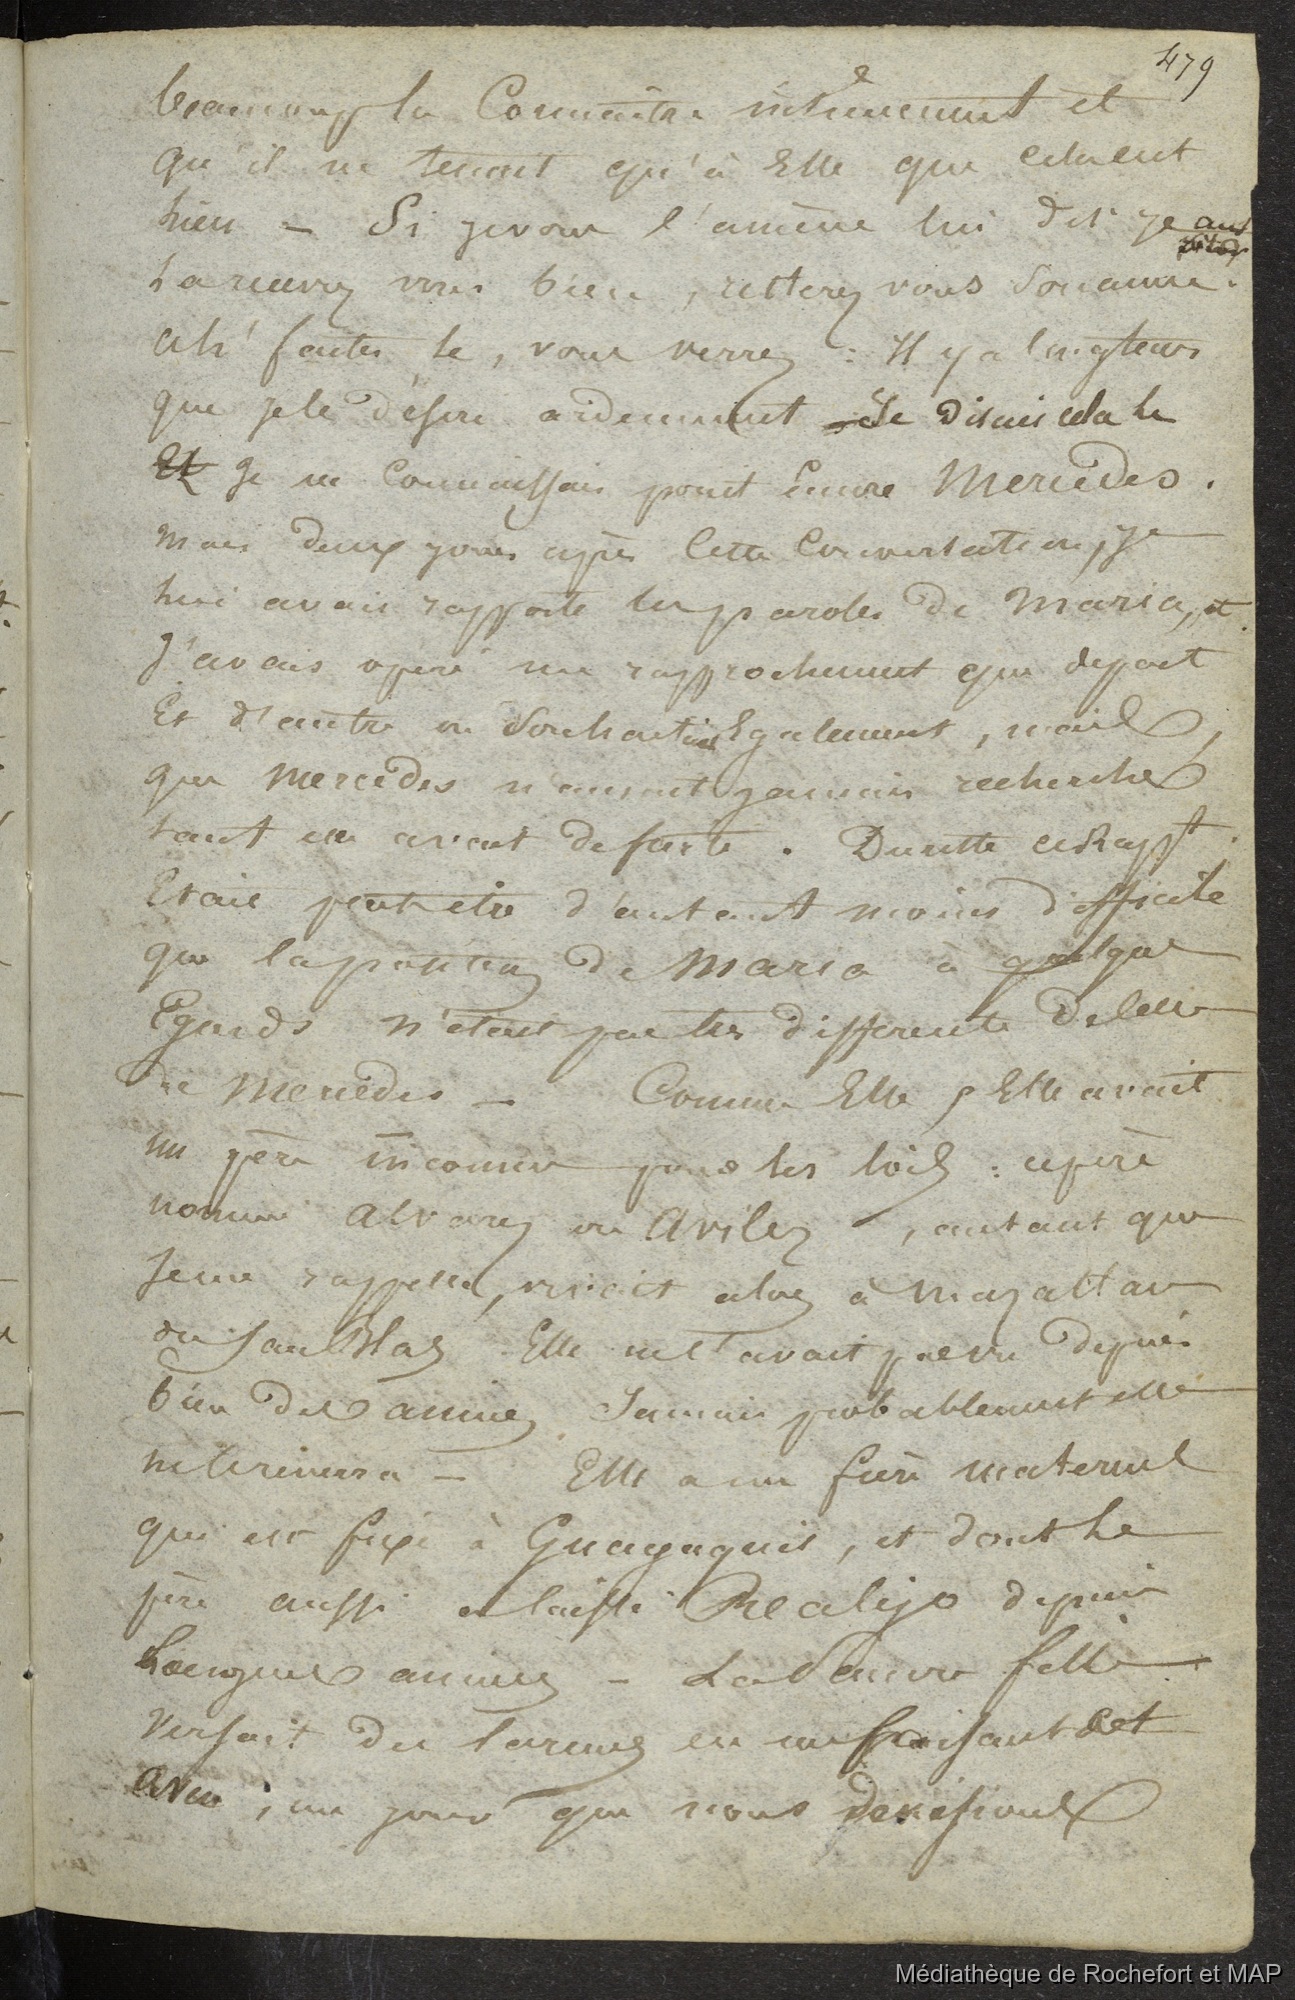 479
beaucoup la Connaitre intimement et
qu'il ne tenait qu'à Elle que cela eut
lieu – Si je vous l'amène lui dis-je aus
sitôt
La recevrez vous bien, resterez vous Son amie.
ah! faites le, vous verrez : Il y a longtems
que je le désire ardemment – Je disais cela
Et Je ne Connaissais point Encore Mercédes.
mais deux jours après Cette Conversation, je
lui avais rapporté les paroles de Maria, et
J'avais opéré un rapprochement que de part
Et d'autre on Souhaitait Egalement, mais
que Mercédes n'aurait jamais recherché
tant elle avait de fierté. Du reste ce Rappt.
Etait peut être d'autant moins difficile
que la position de Maria à quelques
Egards n'était pas très differente de celle
de Mercédes – Comme Elle, Elle avait
un père inconnu pour les lois : ce père
nommé Alvarez ou Avilez, autant que
Je me rappelle, vivait alors à Mazattan
ou San Blas Elle ne l'avait pas vu depuis
bien des années Jamais probablement elle
ne le reverra – Elle a un frère maternel
qui est fixé à Guayaquil, et dont le
père aussi a laissé Realejo depuis
Longues années – La Pauvre fille
Versait des larmes en me faisant cet
aveu, un jour que nous